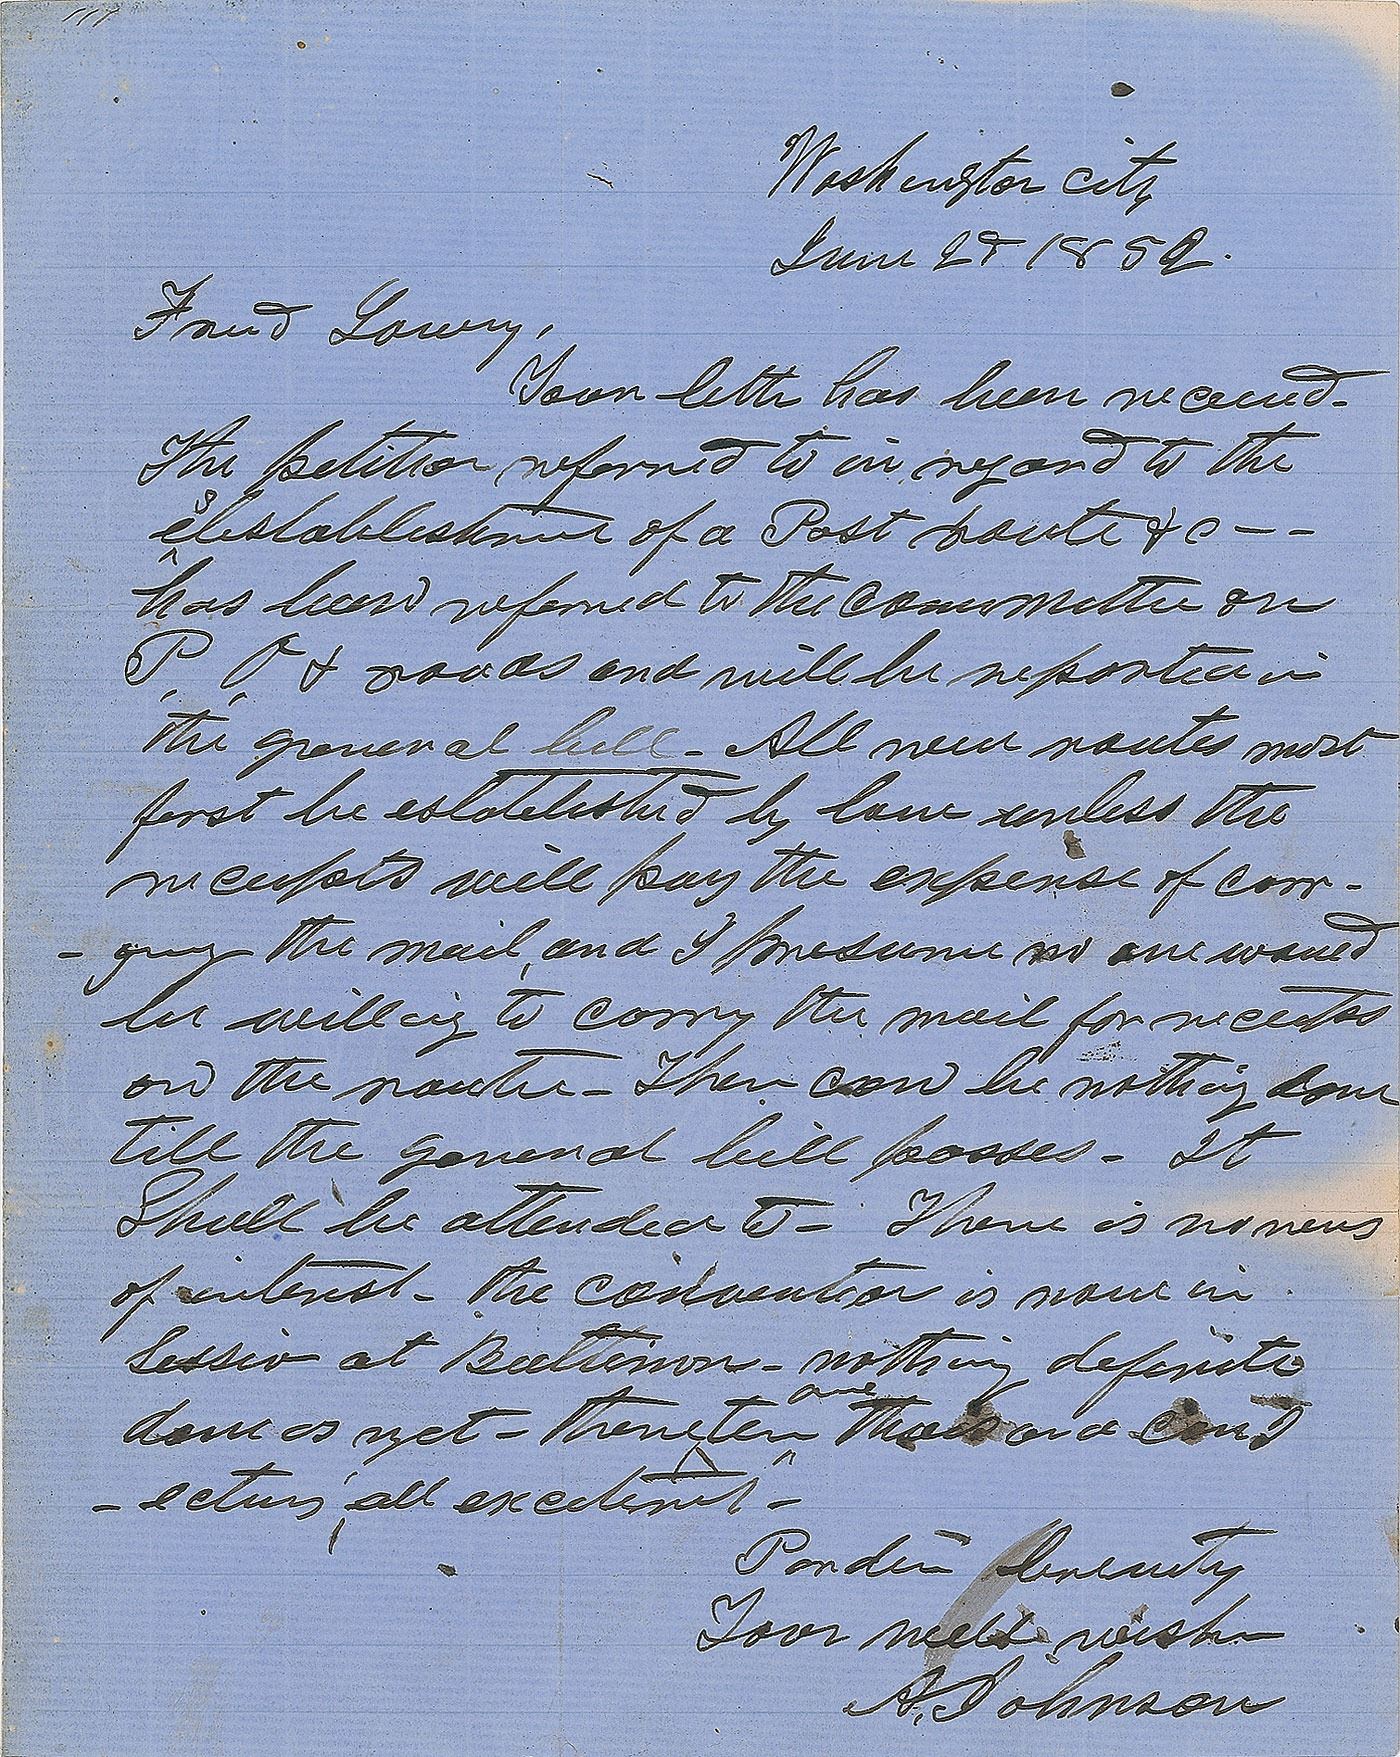 Washington city
June 2d 1852.
Friend Lowry,
Your letter has been received.
The petition referred to in regard to the
establishment of a Post route &c - -
has been referred to the committee on
P. O & roads and will be reported in
the general bill - All new routes must
first be established by law unless the
receipts will pay the expense of carr-
- ying the mail, and I presume no one would
be willing to carry the mail for receipts
on the route - There can be nothing done
till the general bill passes - It
Shall be attended to - There is no news
of interest - the convention is now in
Session at Baltimore - nothing definite
done as yet - there ten thousand
are
all excitement -
Pardon brevity
Your well wisher
A. Johnson